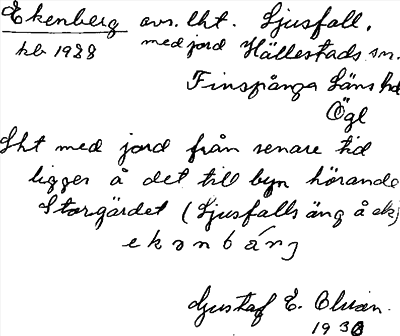 Ekenberg avs. lht. Ljusfall,
kb 1988 med jord Hällestads sn.
Finspånga Läns hd
Ögl
Lht med jord från senare tid
ligger å det till byn hörande
Storgärdet (Ljusfalls äng å ek)
ekənbánʒ
Gustaf E. Olson.
1930